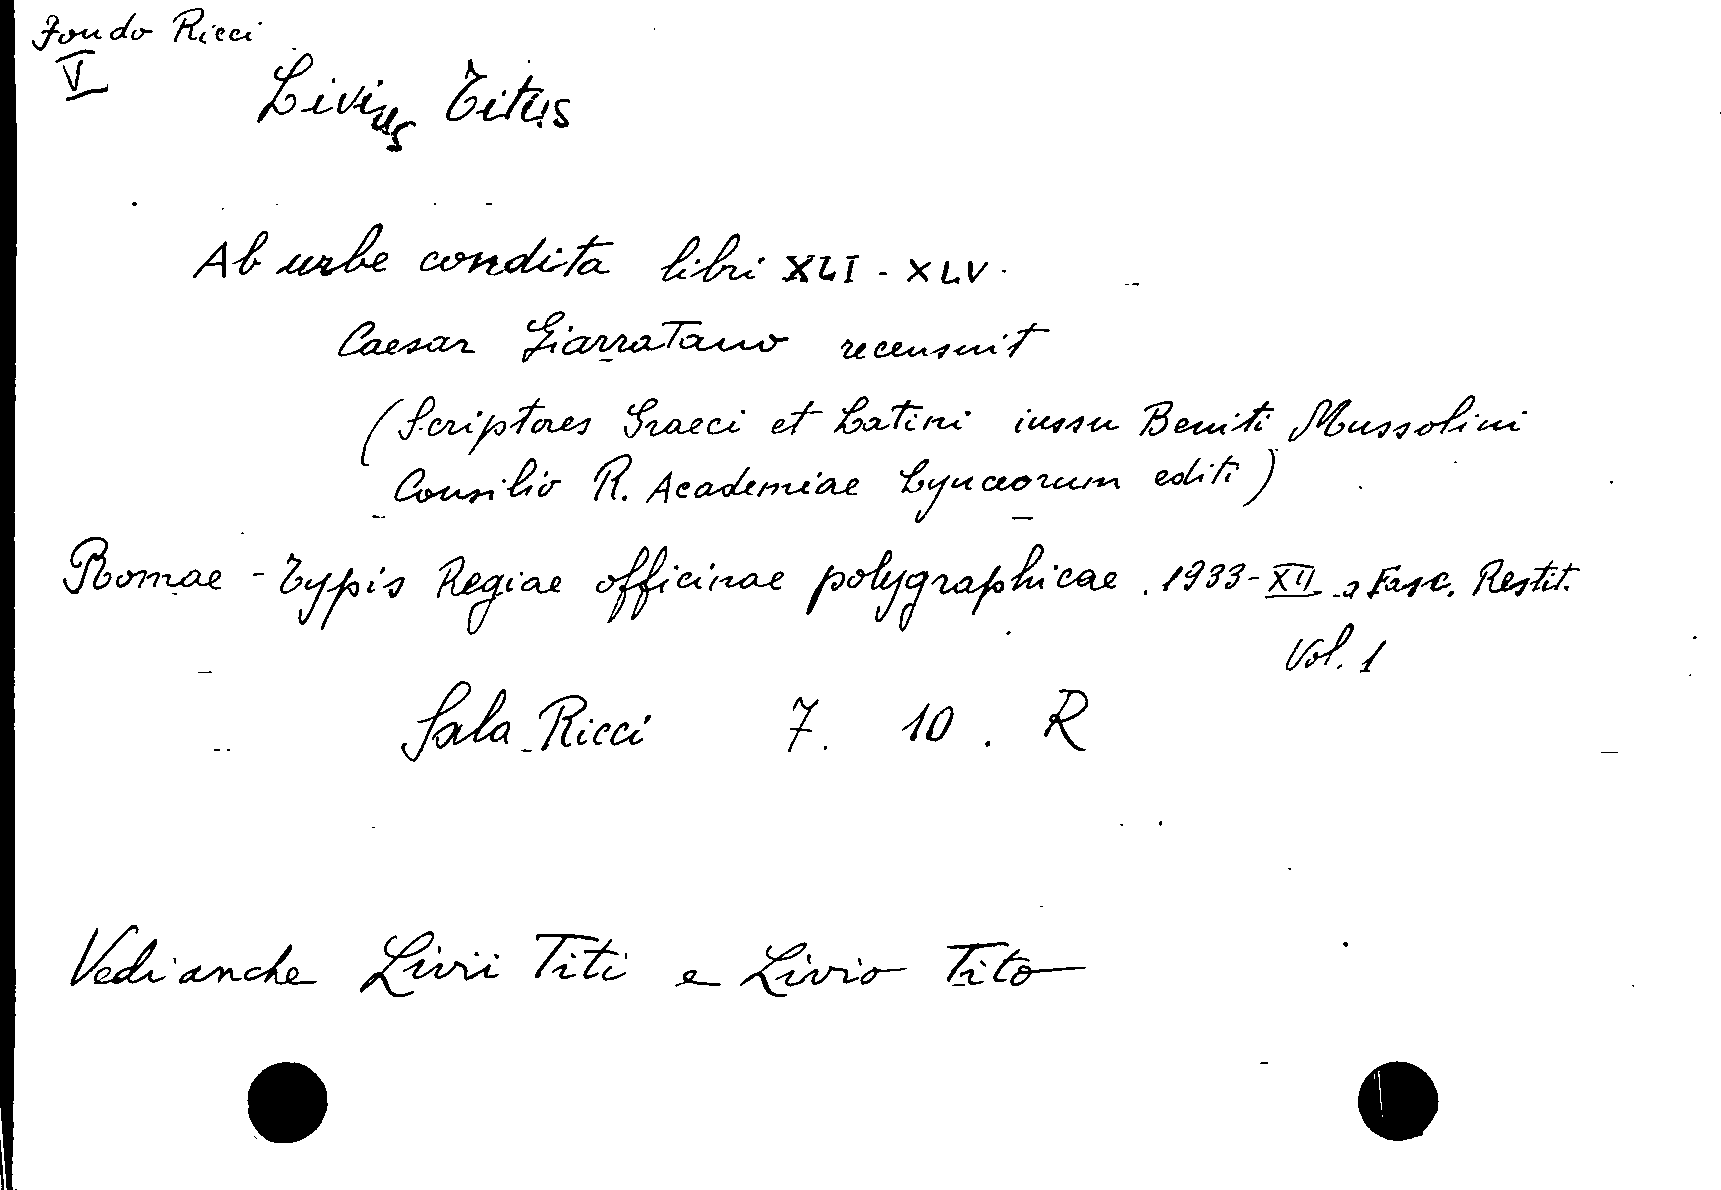 Fondo Ricci
V
Livius Titus
Ab urbe condita libri XLI - XLV.
Caesar Giarratano recensuit
(Scriptores Graeci et Latini iussu Beniti Mussolini
Consilio R. Academiae Lynceorum editi)
Romae - Typis Regiae officinae polygraphicae. 1933-XII a Fasc. Restit.
Vol. 1
Sala Ricci 7. 10. R
Vedi anche Livii Titi e Livio Tito